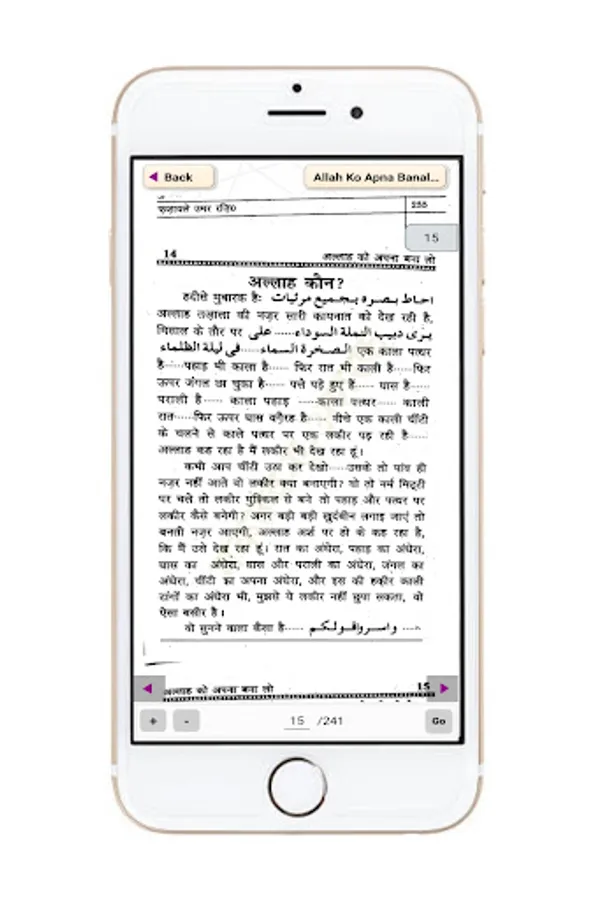 Back
Allah Ko Apna Banal...
फ़ज़ायले उमर रज़ि0 255
15
14 अल्लाह को अपना बना लो
अल्लाह कौन?
हदीसे मुबारक है: احاط بصره بجميع مرئيات
अल्लाह तआ़ला की नज़र सारी कायनात को देख रही है,
मिसाल के तौर पर يرى دبيب النملة السوداء.....على
الصخرة السماء.....فى ليلة الظلماء एक काला पत्थर
है.....पहाड़ भी काला है..... फिर रात भी काली है.....फिर
ऊपर जंगल छा चुका है..... पत्ते पड़े हुए हैं..... घास है.....
पराली है..... काला पहाड़ .....काला पत्थर..... काली
रात.....फिर ऊपर घास वग़ैरह है..... नीचे एक काली चींटी
के चलने से काले पत्थर पर एक लकीर पड़ रही है.....
अल्लाह कह रहा है मैं लकीर भी देख रहा हूं।
कभी आप चींटी उठा कर देखो.....उसके तो पांव ही
नज़र नहीं आते वो लकीर क्या बनाएगी? वो तो नर्म मिट्टी
पर चले तो लकीर मुश्किल से बने तो पहाड़ और पत्थर पर
लकीर कैसे बनेगी? अगर बड़ी बड़ी ख़ुर्दबीन लगाइ जाएं तो
बनती नज़र आएगी, अल्लाह अर्श पर हो के कह रहा है,
कि मैं उसे देख रहा हूं। रात का अंधेरा, पहाड़ का अंधेरा,
घास का अंधेरा, घास और पराली का अंधेरा, जंगल का
अंधेरा, चींटी का अपना अंधेरा, और इस की हक़ीर काली
टांगों का अंधेरा भी, मुझसे ये लकीर नहीं छुपा सकता, वो
ऐसा बसीर है।
वो सुनने वाला कैसा है..... واسرواقولكم ....
अल्लाह को अपना बना लो 15
+ - 15 /241 Go